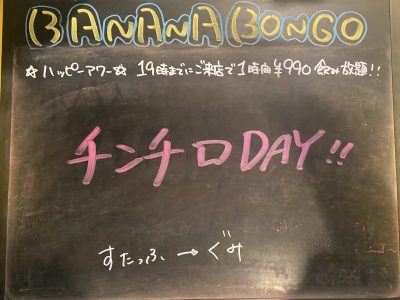 BANANA BONGO
☆ハッピーアワー☆ 19時までにご来店で1時間¥990 飲み放題!!
チンチロDAY!!
すたっふ→ぐみ